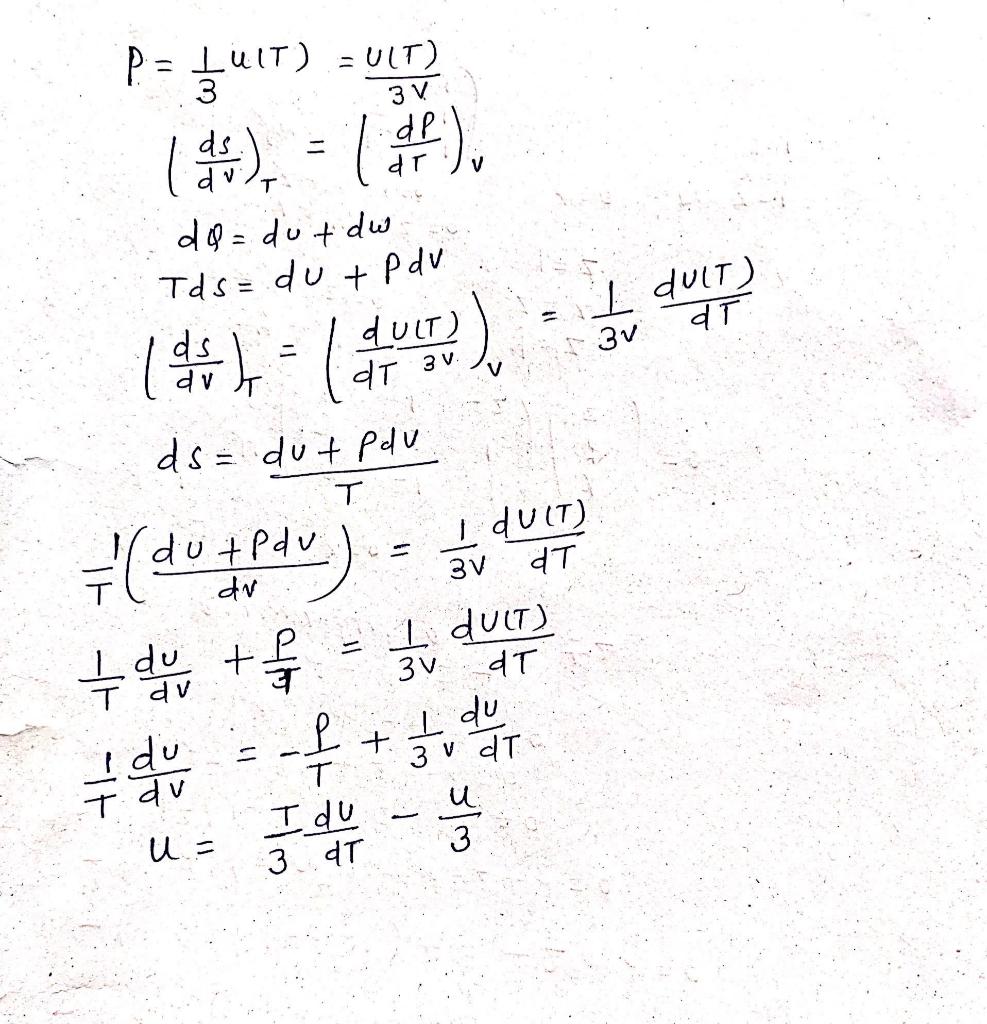 P = 1/3 u(T) = U(T)/3V
(ds/dv)_T = (dP/dT)_v
dQ = du + dw
Tds = du + Pdv
(ds/dv)_T = (d/dT U(T)/3V)_v = 1/3v dU(T)/dT
ds = du + Pdv / T
1/T (du + Pdv / dv) = 1/3V dU(T)/dT
1/T du/dv + P/T = 1/3V dU(T)/dT
1/T du/dv = -P/T + 1/3v du/dT
u = T/3 du/dT - u/3